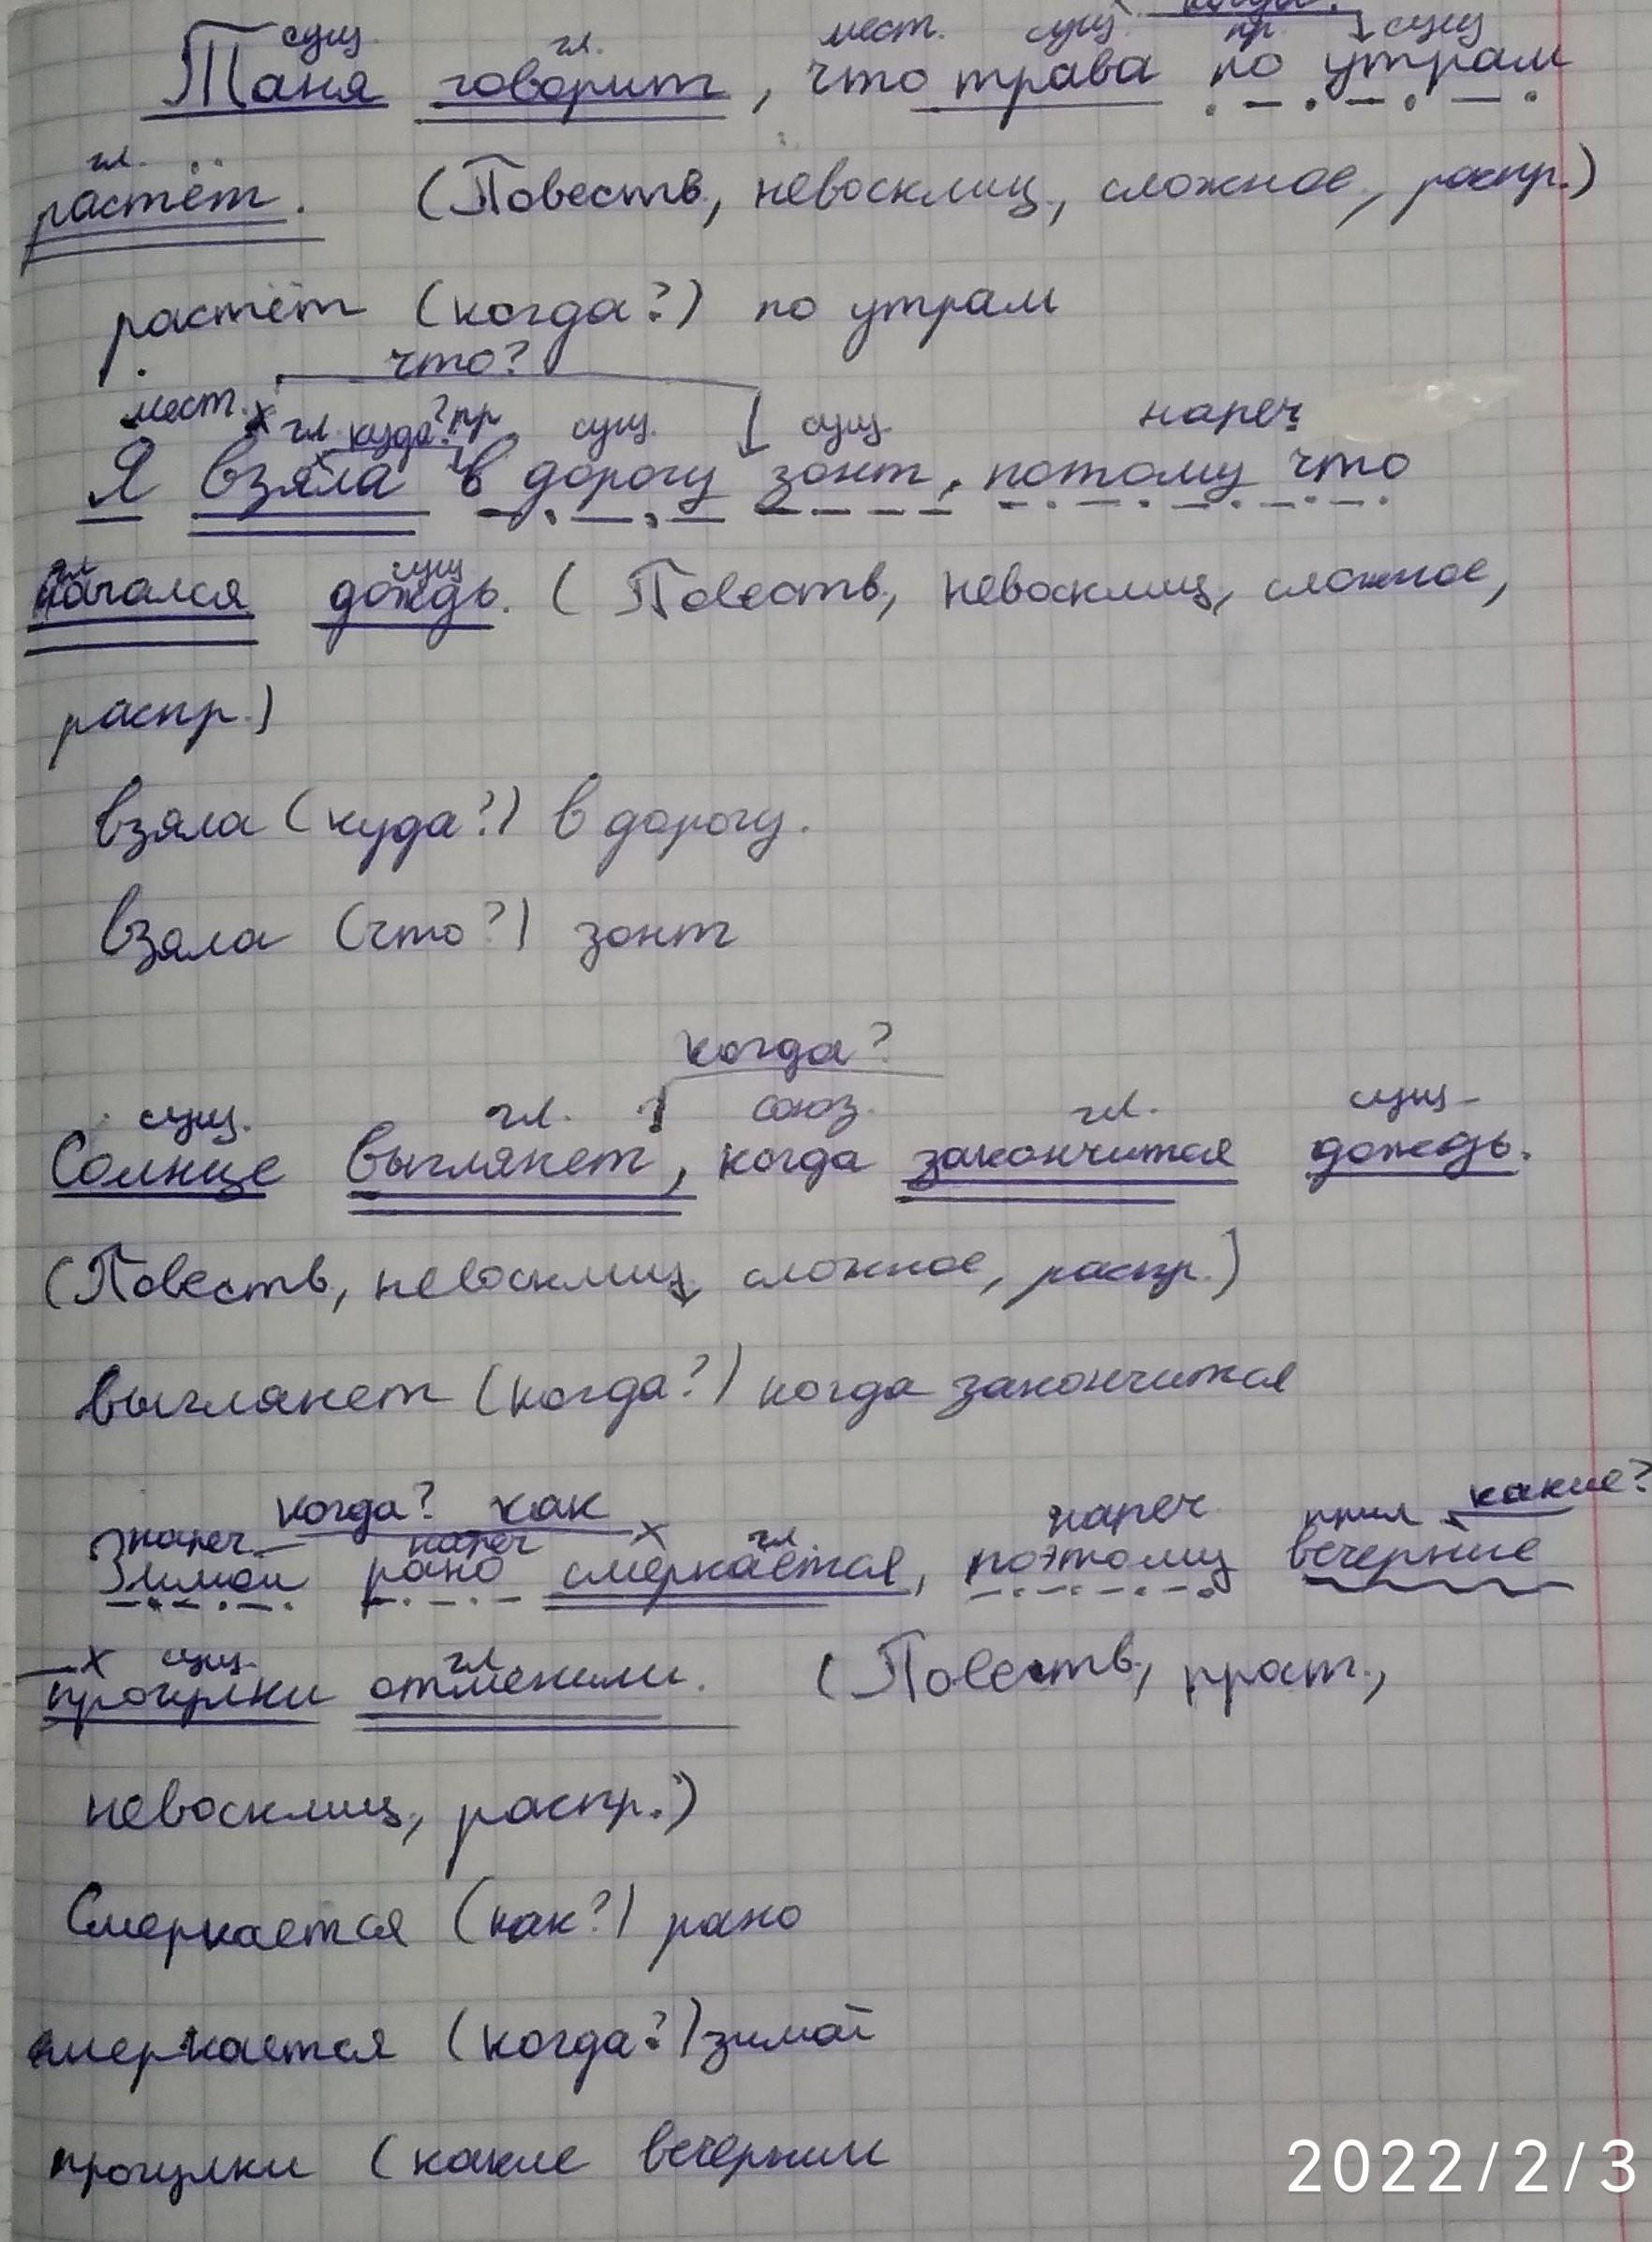 когда?
сущ. гл. мест. сущ. пр. сущ
Таня говорит, что трава по утрам
гл.
растёт. (Повеств., невосклиц., сложное, распр.)
растёт (когда?) по утрам
что?
мест. гл. куда? пр сущ. сущ. нареч
Я взяла в дорогу зонт, потому что
гл сущ
начался дождь. (Повеств., невосклиц., сложное,
распр.)
взяла (куда?) в дорогу.
взяла (что?) зонт
когда?
сущ. гл. союз. гл. сущ
Солнце выглянет, когда закончится дождь.
(Повеств., невосклиц, сложное, распр.)
выглянет (когда?) когда закончится
когда? как какие?
нареч нареч гл нареч прил
Зимой рано смеркается, поэтому вечерние
сущ. гл
прогулки отменили. (Повеств., прост.,
невосклиц., распр.)
Смеркается (как?) рано
смеркается (когда?) зимой
прогулки (какие вечерним
2022/2/3